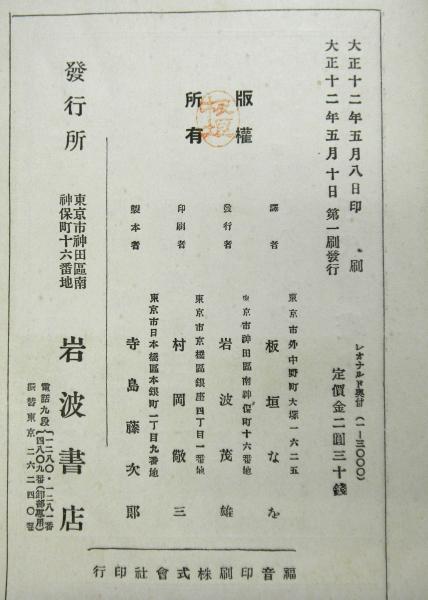 大正十二年五月八日印刷
大正十二年五月十日第一刷發行
レオナルド奧付（1—3000）
定價金二圓三十錢
版權所有
板垣
東京市外中野町大塚一六二五
譯者 板垣なを
東京市神田區南神保町十六番地
發行者 岩波茂雄
東京市京橋區銀座四丁目一番地
印刷者 村岡敬三
東京市日本橋區本銀町一丁目九番地
製本者 寺島藤次郎
發行所
東京市神田區南神保町十六番地
岩波書店
電話九段
一二八〇・一二八一番
四八〇九番(卸部專用)
振替東京二六二四〇番
福音印刷株式會社印行